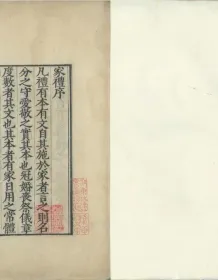 家禮序
凡禮有本有文自其施於家者言之則名
分之守愛敬之實其本也冠婚喪祭儀章
度數者其文也其本者有家日用之常體